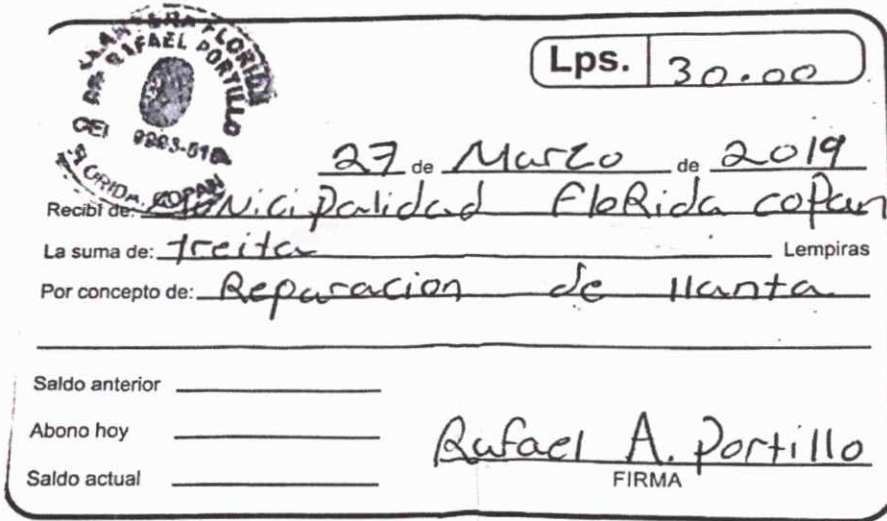 LLANTERA FLORIDA
DE RAFAEL PORTILLO
CEL 9993-51
FLORIDA, COPAN
Lps. 30.00
27 de Marzo de 2019
Recibí de: Municipalidad FloRida copan
La suma de: treita Lempiras
Por concepto de: Reparacion de llanta
Saldo anterior
Abono hoy
Saldo actual
Rafael A. Portillo
FIRMA